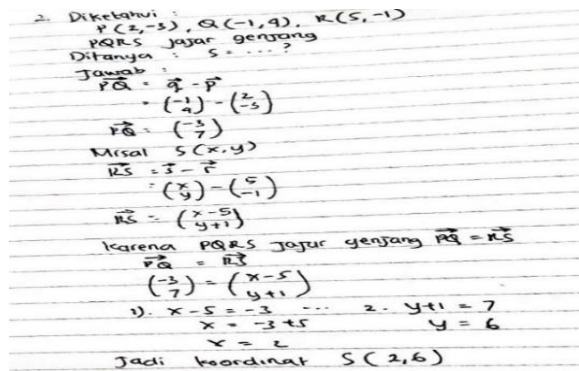 2. Diketahui :
P(2,-3), Q(-1,4), R(5,-1)
PQRS jajar genjang
Ditanya : S = ... ?
Jawab :
PQ = q - p
= (-1 4) - (2 -3)
PQ = (-3 7)
Misal S(x,y)
RS = s - r
= (x y) - (5 -1)
RS = (x-5 y+1)
Karena PQRS Jajar genjang PQ = RS
PQ = RS
(-3 7) = (x-5 y+1)
1). x-5 = -3 ... 2. y+1 = 7
x = -3 +5 y = 6
x = 2
Jadi koordinat S(2,6)